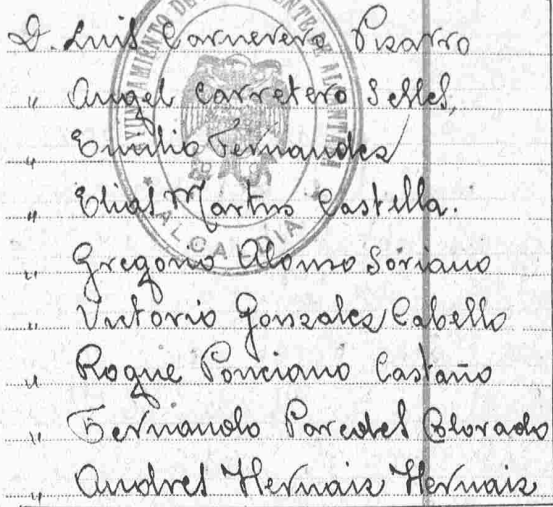 D. Luis Carnerero Pizarro
„ Angel Carretero Selles,
„ Emilio Fernandez
„ Elias Martin Castella.
„ Gregorio Alonso Soriano
„ Victorio Gonzalez Cabello
„ Roque Ponciano Castaño
„ Fernando Paredes Colorado
„ Andres Hernaiz Hernaiz
ALCALDIA